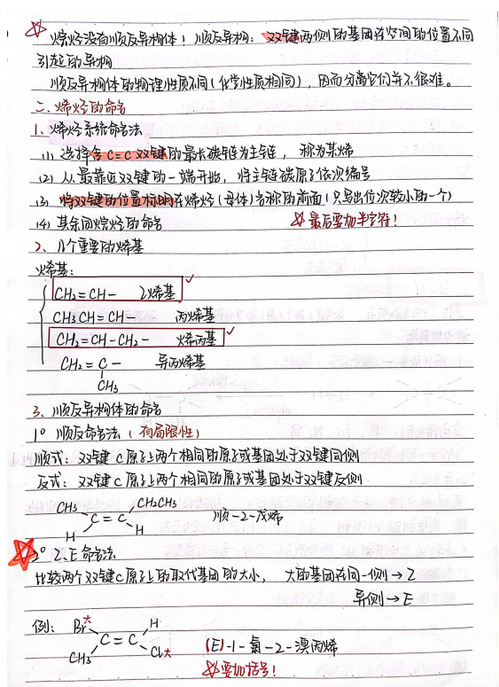 ☆ 烷烃没有顺反异构体！顺反异构：双键两侧的基团在空间的位置不同
引起的异构
顺反异构体的物理性质不同（化学性质相同），因而分离它们并不很难。
二、烯烃的命名
1、烯烃系统命名法
(1) 选择含C=C双键的最长碳链为主链，称为某烯
(2) 从最靠近双键的一端开始，将主链碳原子依次编号
(3) 将双键的位置标明在烯烃（母体）名称的前面（只写出位次较小的一个）
(4) 其余同烷烃的命名 ☆最后要加半字符！
2、几个重要的烯基
烯基：
CH2=CH- 乙烯基 ✓
CH3CH=CH- 丙烯基
CH2=CH-CH2- 烯丙基 ✓
CH2=C- 异丙烯基
CH3
3、顺反异构体的命名
1° 顺反命名法（有局限性）
顺式：双键C原子上两个相同的原子或基团处于双键同侧
反式：双键C原子上两个相同的原子或基团处于双键反侧
CH3 CH2CH3
C=C 顺-2-戊烯
H H
☆2° Z、E命名法
比较两个双键C原子上的取代基团的大小，大的基团在同一侧→Z
异侧→E
例：Br* H
C=C (E)-1-氯-2-溴丙烯
CH3 Cl*
☆要加括号！